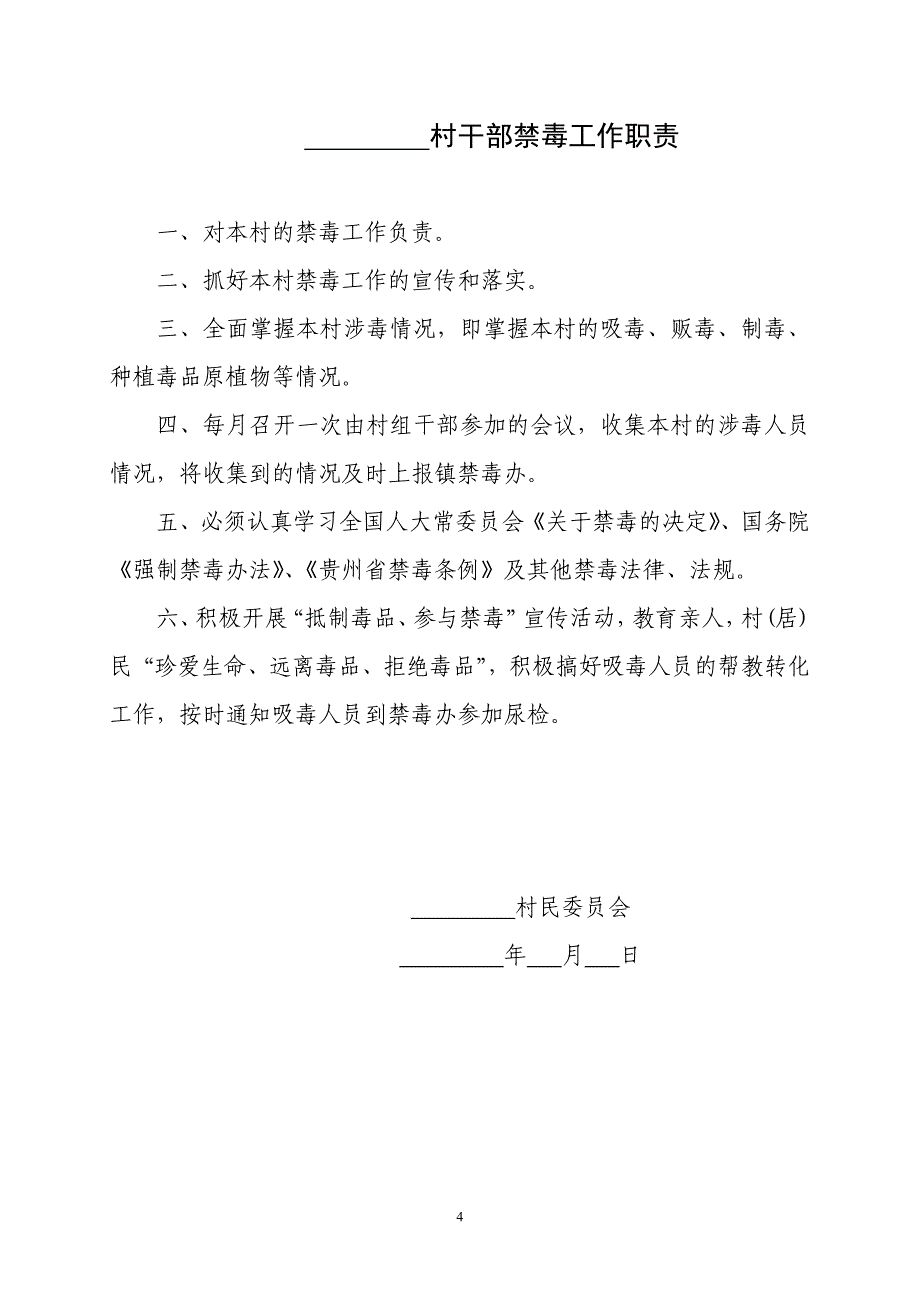 _________村干部禁毒工作职责
一、对本村的禁毒工作负责。
二、抓好本村禁毒工作的宣传和落实。
三、全面掌握本村涉毒情况，即掌握本村的吸毒、贩毒、制毒、
种植毒品原植物等情况。
四、每月召开一次由村组干部参加的会议，收集本村的涉毒人员
情况，将收集到的情况及时上报镇禁毒办。
五、必须认真学习全国人大常委员会《关于禁毒的决定》、国务院
《强制禁毒办法》、《贵州省禁毒条例》及其他禁毒法律、法规。
六、积极开展“抵制毒品、参与禁毒”宣传活动，教育亲人，村(居)
民“珍爱生命、远离毒品、拒绝毒品”，积极搞好吸毒人员的帮教转化
工作，按时通知吸毒人员到禁毒办参加尿检。
_________村民委员会
_________年___月___日
4